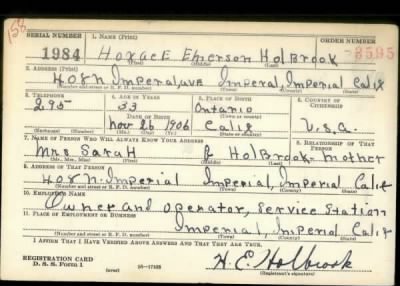 158
SERIAL NUMBER 1. NAME (Print) ORDER NUMBER
1984 Horace Emerson HolBrook 3595
(First) (Middle) (Last)
2. ADDRESS (Print)
408 N Imperial, ave Imperial, Imperial Calif
(Number and street or R. F. D. number) (Town) (County) (State)
3. TELEPHONE 4. AGE IN YEARS 5. PLACE OF BIRTH 6. COUNTRY OF CITIZENSHIP
295 33 Ontario
DATE OF BIRTH (Town or county)
Nov 26 1906 Calif U.S.A.
(Exchange) (Number) (Mo.) (Day) (Yr.) (State or country)
7. NAME OF PERSON WHO WILL ALWAYS KNOW YOUR ADDRESS 8. RELATIONSHIP OF THAT PERSON
Mrs Sarah B HolBrook - mother
(Mr., Mrs., Miss) (First) (Middle) (Last)
9. ADDRESS OF THAT PERSON
408 N. Imperial Imperial, Imperial Calif
(Number and street or R. F. D. number) (Town) (County) (State)
10. EMPLOYER'S NAME
Owner and operator, Service Station
11. PLACE OF EMPLOYMENT OR BUSINESS
Imperial, Imperial Calif
(Number and street or R. F. D. number) (Town) (County) (State)
I AFFIRM THAT I HAVE VERIFIED ABOVE ANSWERS AND THAT THEY ARE TRUE.
REGISTRATION CARD
D. S. S. Form 1 (over) 16—17105 H. E. Holbrook
(Registrant's signature)